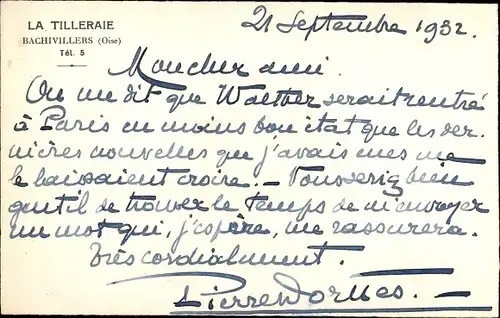 LA TILLERAIE
BACHIVILLERS (Oise)
Tél. 5
21 Septembre 1932.
Mon cher ami.
On me dit que Walther serait rentré
à Paris en moins bon état que les der-
nières nouvelles que j'avais eues me
le laissaient croire. — Vous seriez bien
gentil de trouver le temps de m'envoyer
un mot qui, j'espère, me rassurera.
Très cordialement.
Pierre